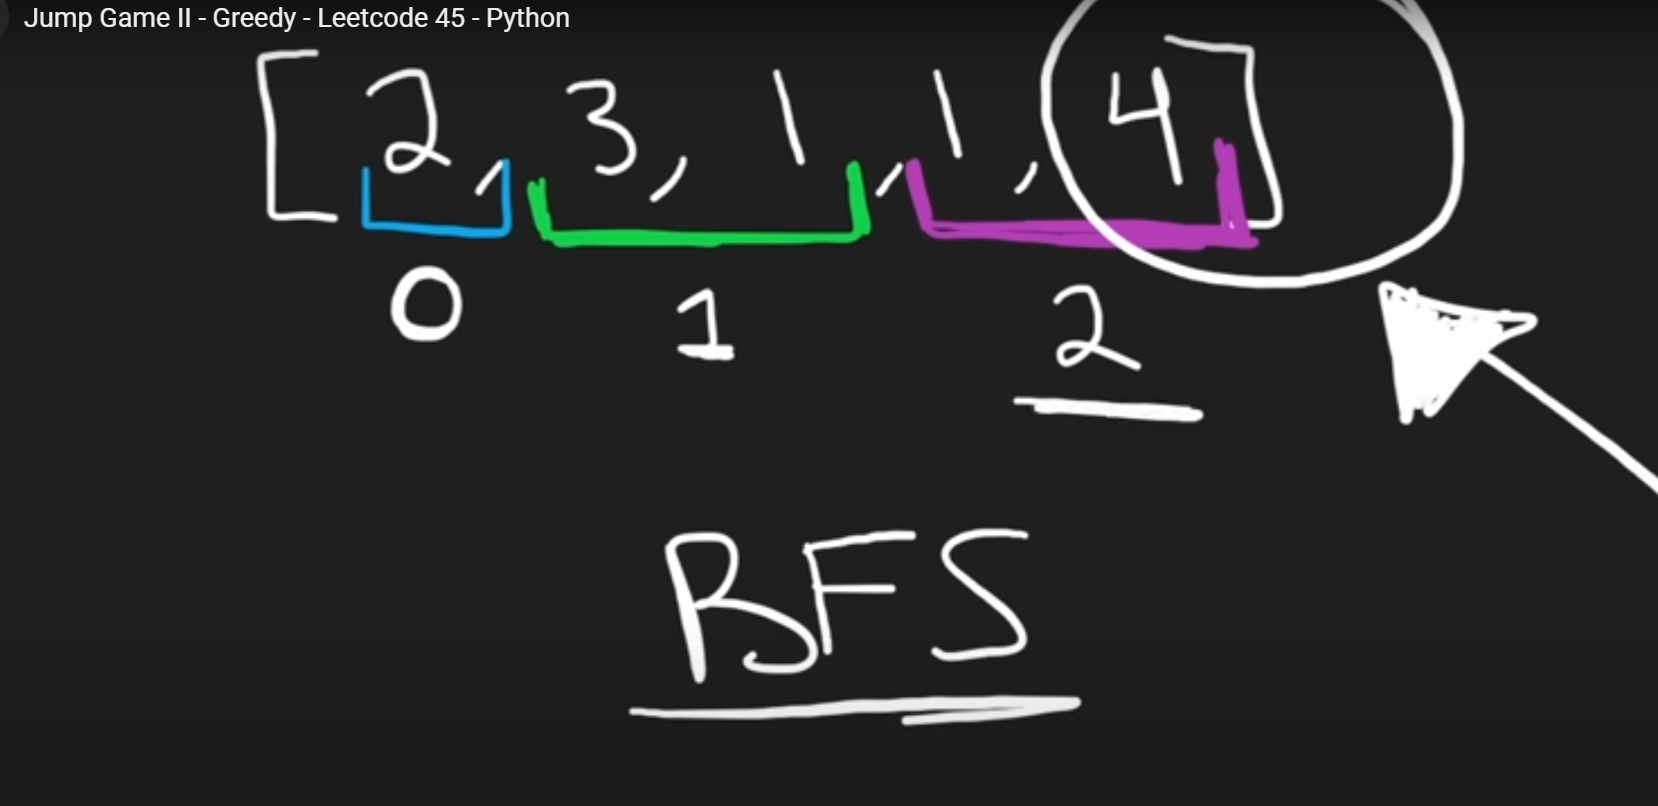 Jump Game II - Greedy - Leetcode 45 - Python
[2, 3, 1, 1, 4]
0 1 2
BFS